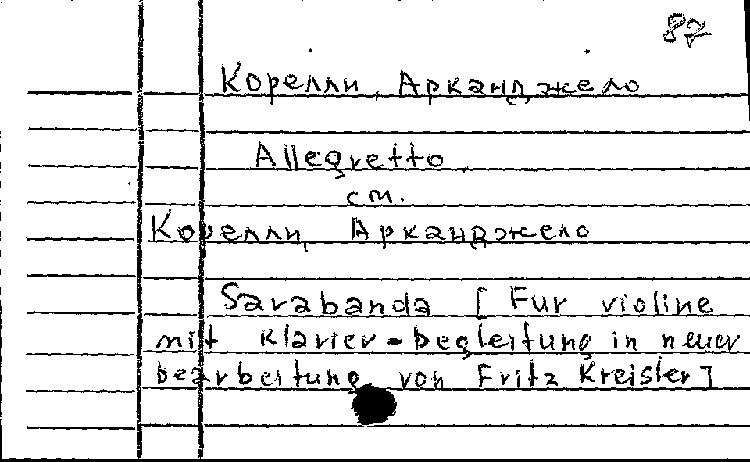 87
Корелли, Арканджело
Allegretto.
см.
Корелли, Арканджело
Sarabanda [Fur violine
mit Klavier-begleitung in neuer
bearbeitung von Fritz Kreisler]